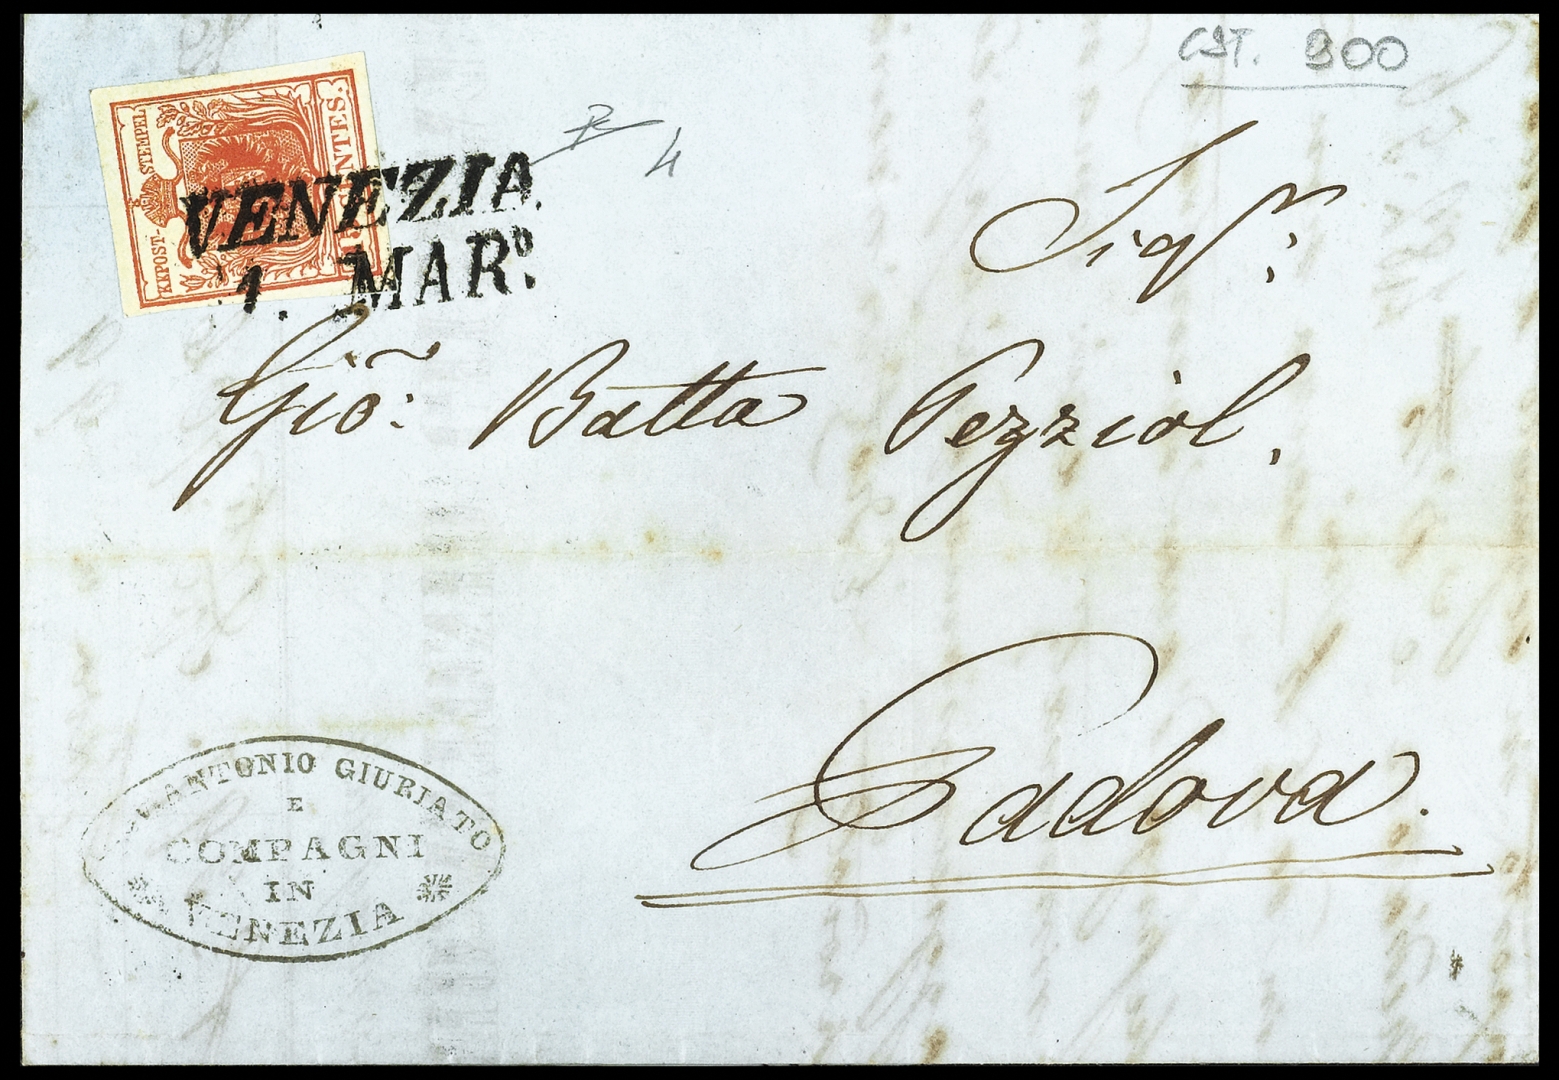 CST. 900
KKPOST-STEMPEL
CENTES.
VENEZIA
1. MARº.
4
Sigʳ:
Gio: Batta Pezziol.
Padova.
ANTONIO GIURIATO
E
COMPAGNI
IN
VENEZIA